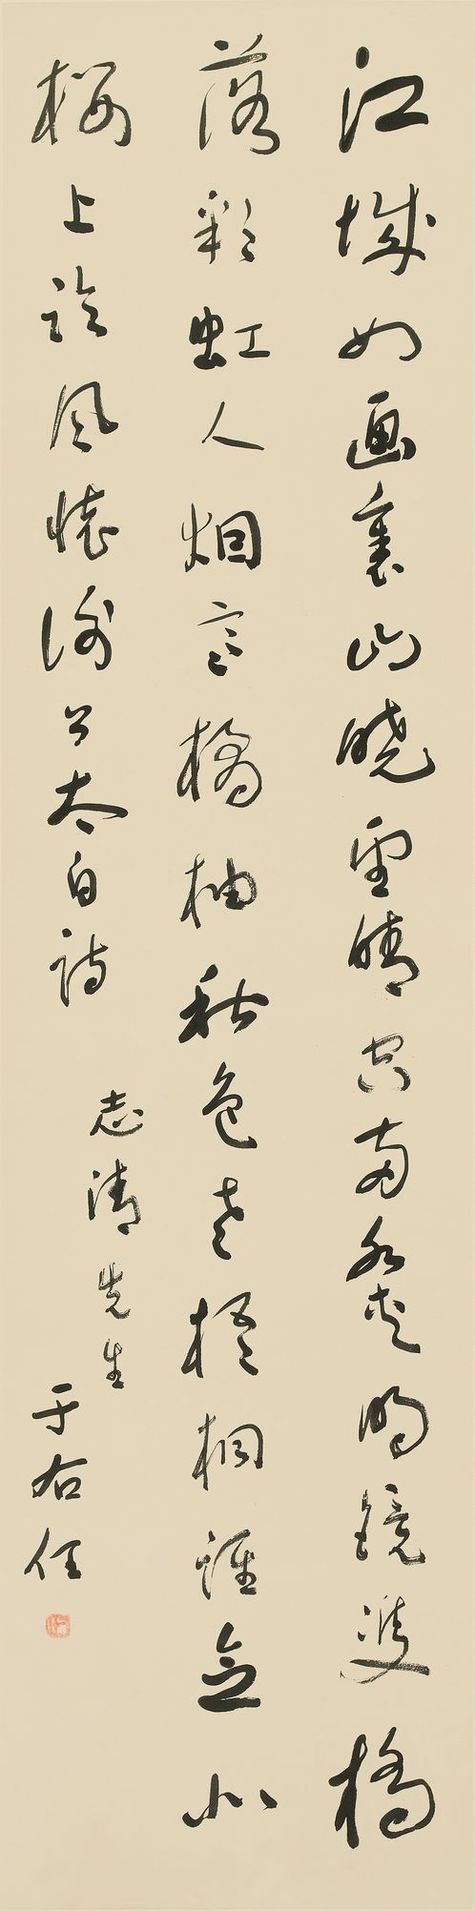 江城如画裏山曉望晴空兩水夾明鏡雙橋
落彩虹人烟寒橘柚秋色老梧桐誰念北
樓上臨風懷謝公太白詩
志清先生
于右任